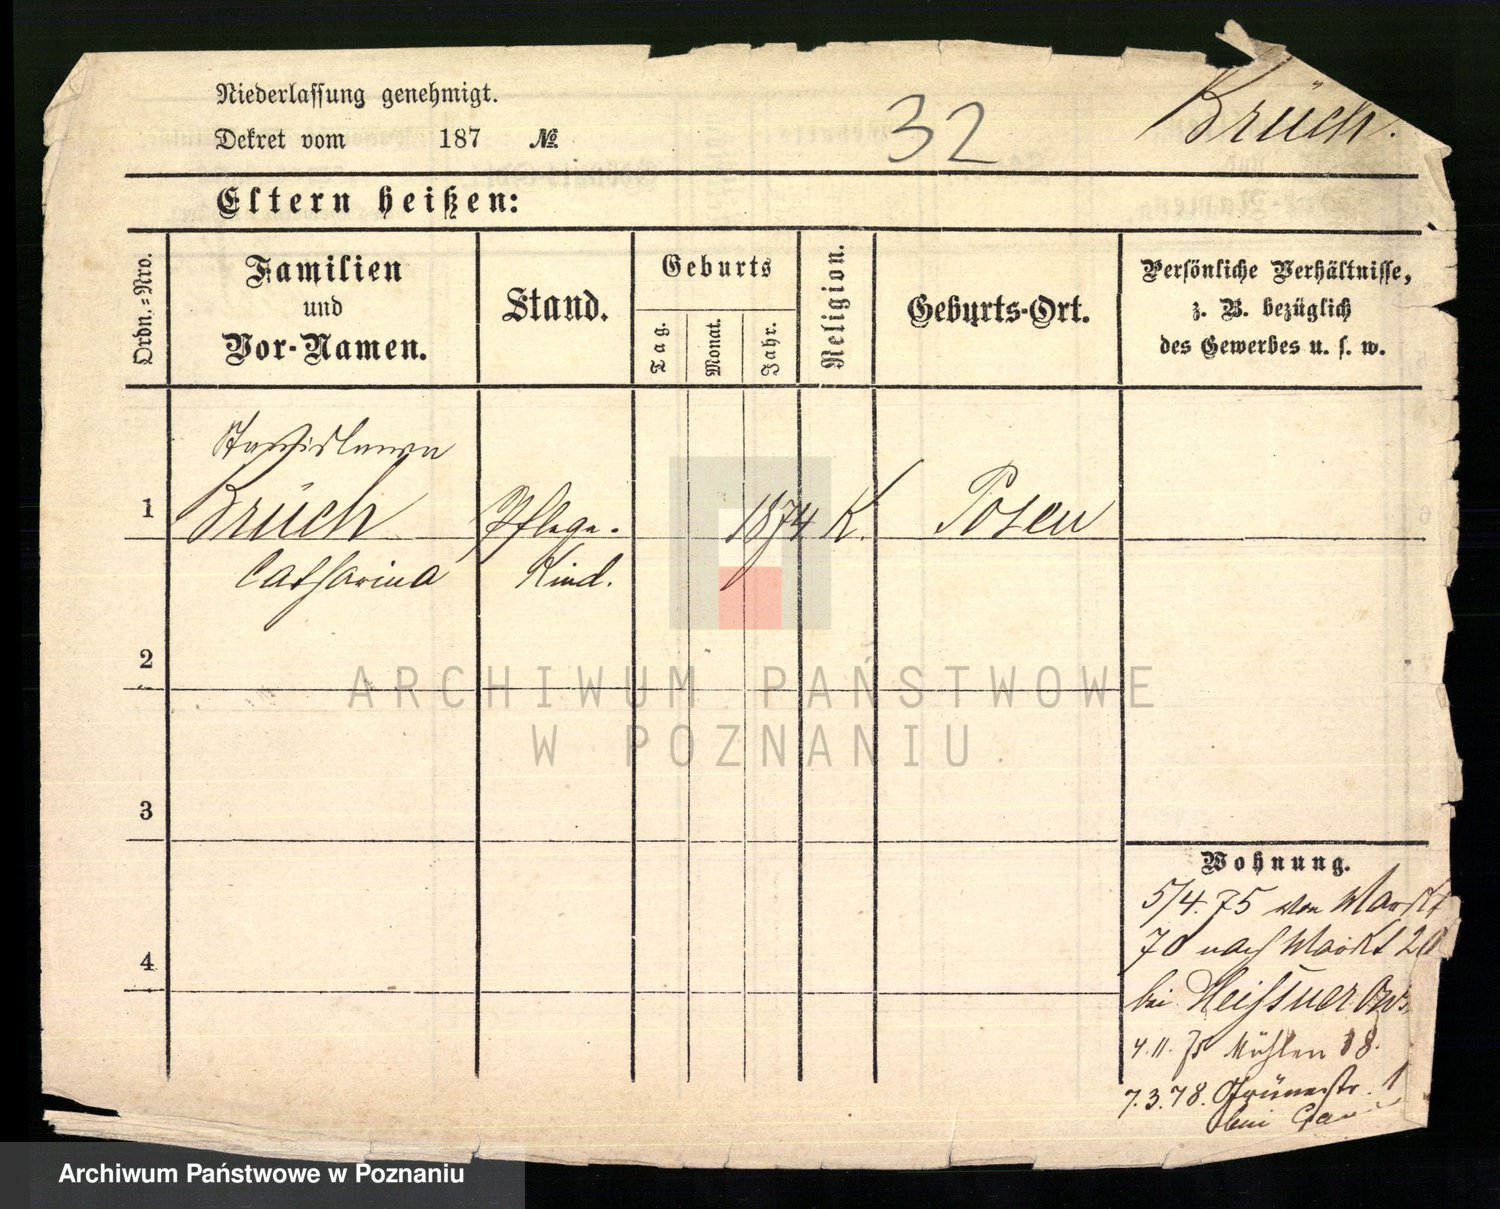 Niederlassung genehmigt.
Dekret vom 187 №
32
Brüch.
Eltern heißen:
Ordn.=Nro.
Familien
und
Vor-Namen.
Stand.
Geburts
Tag.
Monat.
Jahr.
Religion.
Geburts-Ort.
Persönliche Verhältnisse,
z. B. bezüglich
des Gewerbes u. s. w.
Stanislawa
1 Brüch Pflege- 1874 K. Posen
Catharina Kind.
2
ARCHIWUM PAŃSTWOWE
W POZNANIU
3
Wohnung.
5/4. 75 von Markt
70 nach Markt 20
bei
4.11.75 Mühlen 18.
7.3.78. 1
bei
4
Archiwum Państwowe w Poznaniu